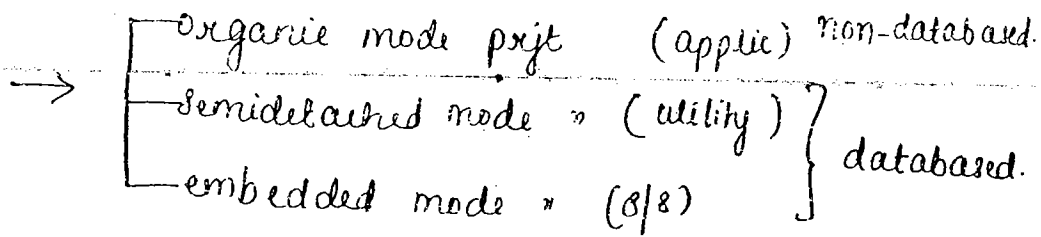 → organic mode prjt (applic) non-databased.
semidetached mode " (utility)
embedded mode " (s/s) databased.